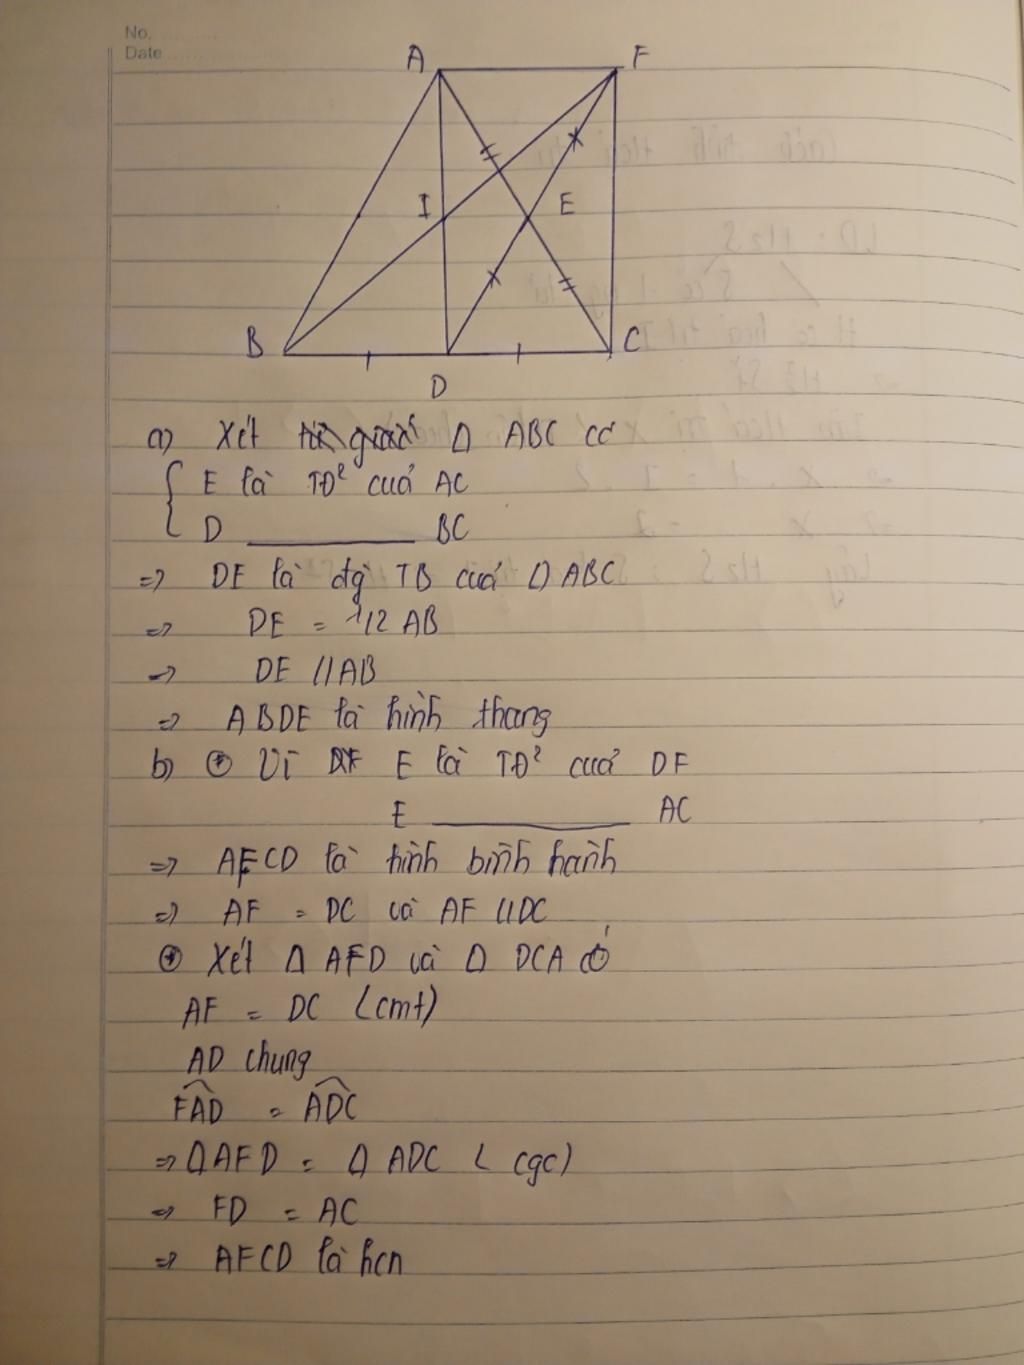 No.
Date
A F
I E
B C
D
a) Xét Δ ABC có
E là TĐ² của AC
D ______ BC
=> DE là đg TB của Δ ABC
=> DE = 1/2 AB
=> DE // AB
=> ABDE là hình thang
b) + Vì E là TĐ² của DF
E ______ AC
=> AFCD là hình bình hành
=> AF = DC và AF // DC
+ Xét Δ AFD và Δ DCA có
AF = DC (cmt)
AD chung
FAD = ADC
=> Δ AFD = Δ ADC ( cgc)
=> FD = AC
=> AFCD là hcn